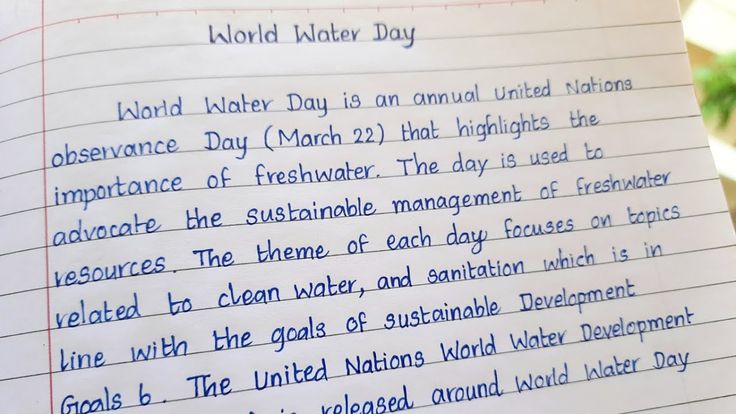 World Water Day
World Water Day is an annual United Nations
observance Day (March 22) that highlights the
importance of freshwater. The day is used to
advocate the sustainable management of freshwater
resources. The theme of each day focuses on topics
related to clean water, and sanitation which is in
line with the goals of sustainable Development
Goals 6. The United Nations World Water Development
is released around World Water Day